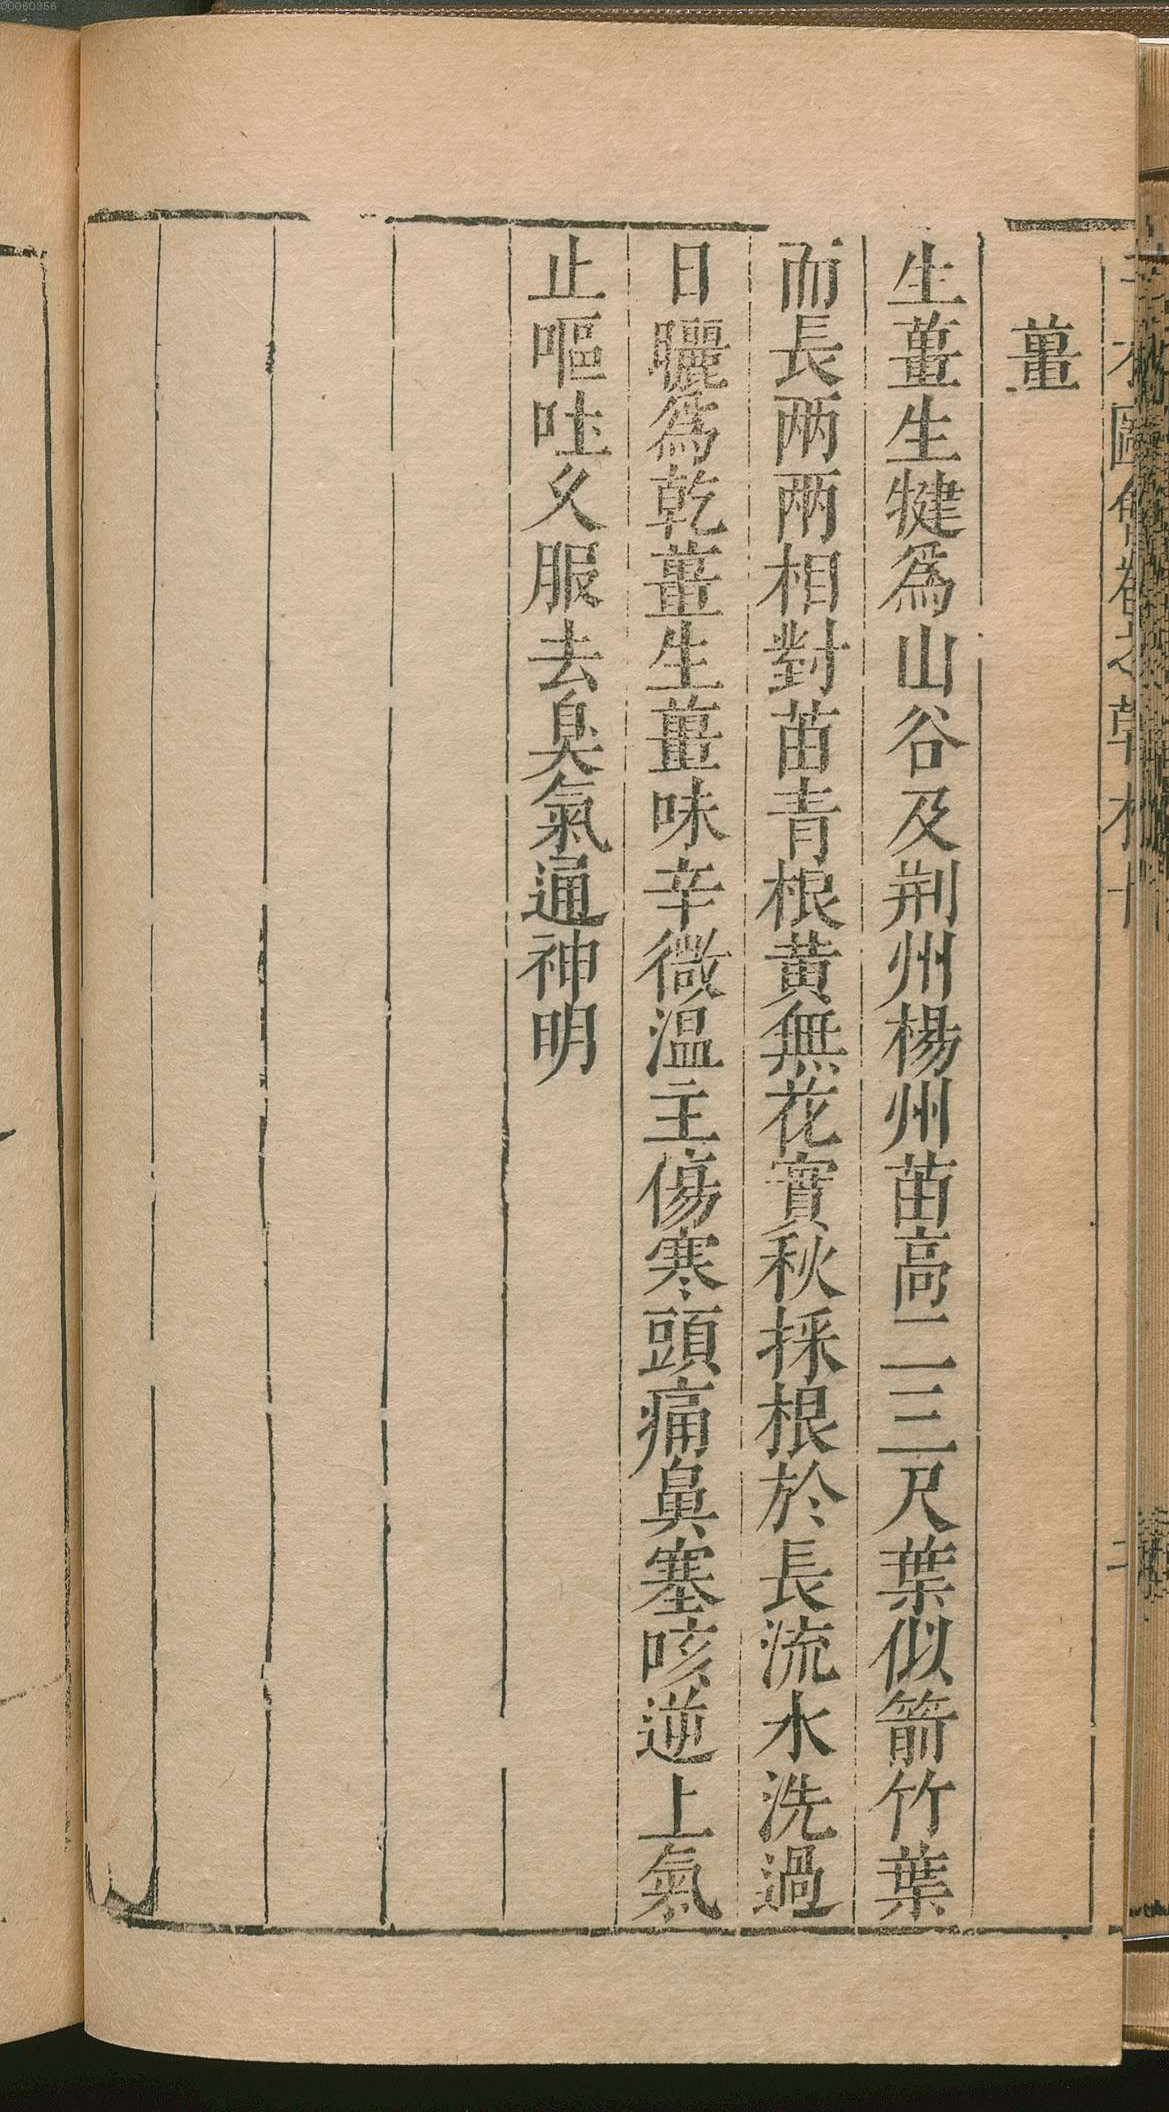 00060356
薑
生薑生犍爲山谷及荆州楊州苗高二三尺葉似箭竹葉
而長两两相對苗青根黄無花實秋採根於長流水洗過
日曬爲乾薑生薑味辛微温主傷寒頭痛鼻塞咳逆上氣
止嘔吐乆服去臭氣通神明